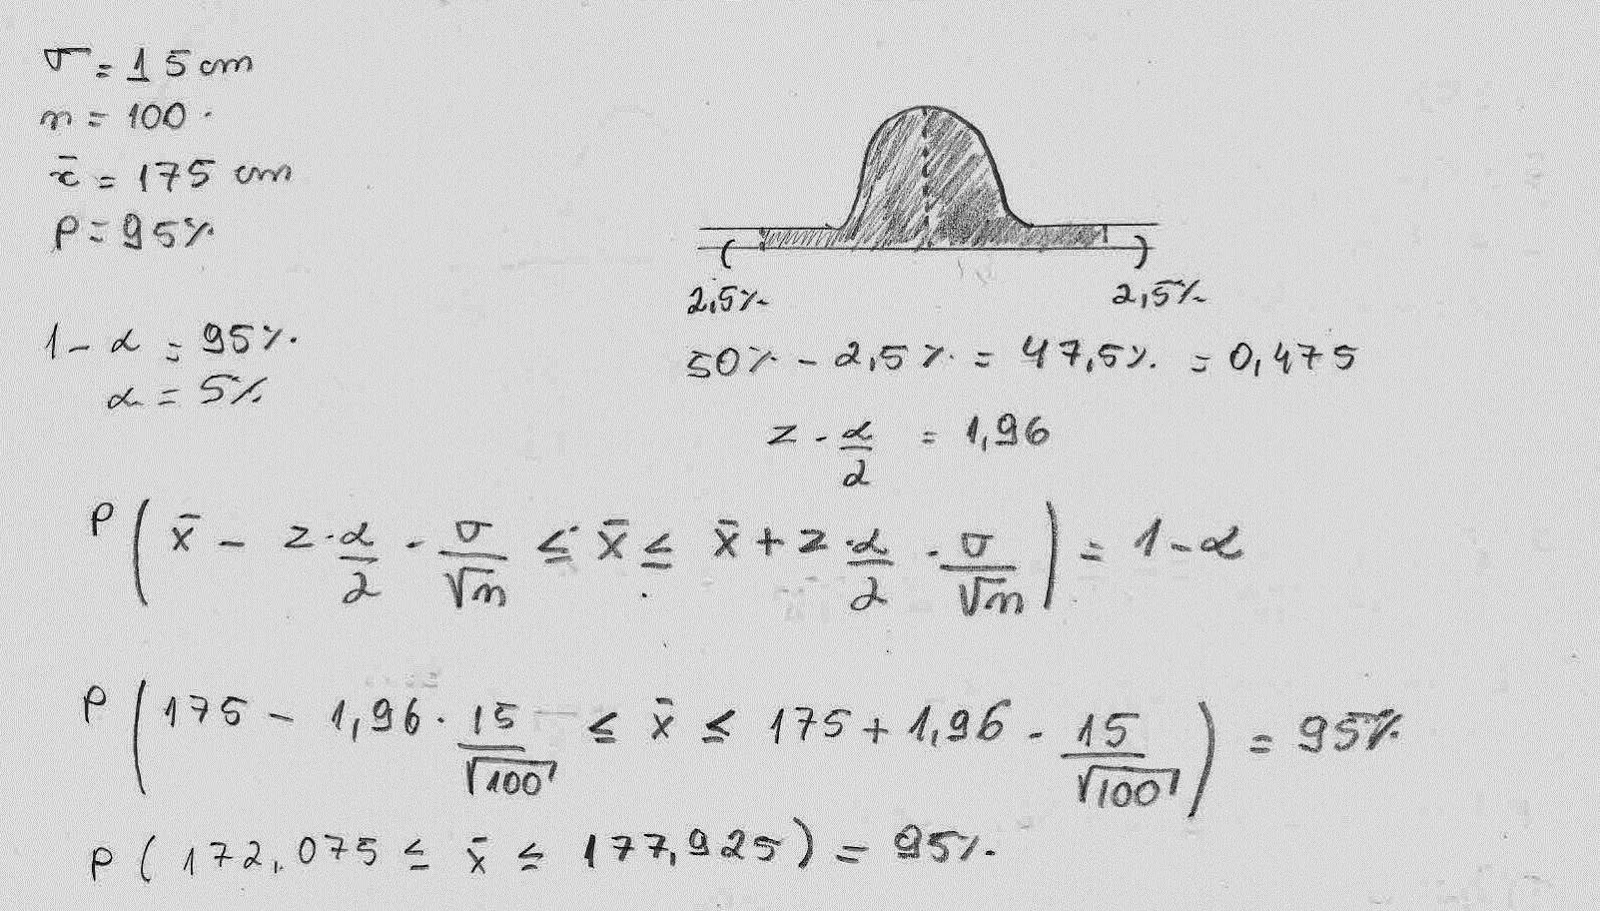 σ = 15 cm
n = 100.
x̄ = 175 cm
P = 95%
1 - α = 95%.
α = 5%
2,5%. 2,5%.
50% - 2,5%. = 47,5%. = 0,475
z · α/2 = 1,96
P ( x̄ - z · α/2 · σ/√n ≤ x̄ ≤ x̄ + z · α/2 · σ/√n ) = 1 - α
P ( 175 - 1,96 · 15/√100 ≤ x̄ ≤ 175 + 1,96 · 15/√100 ) = 95%
P ( 172,075 ≤ x̄ ≤ 177,925 ) = 95%.